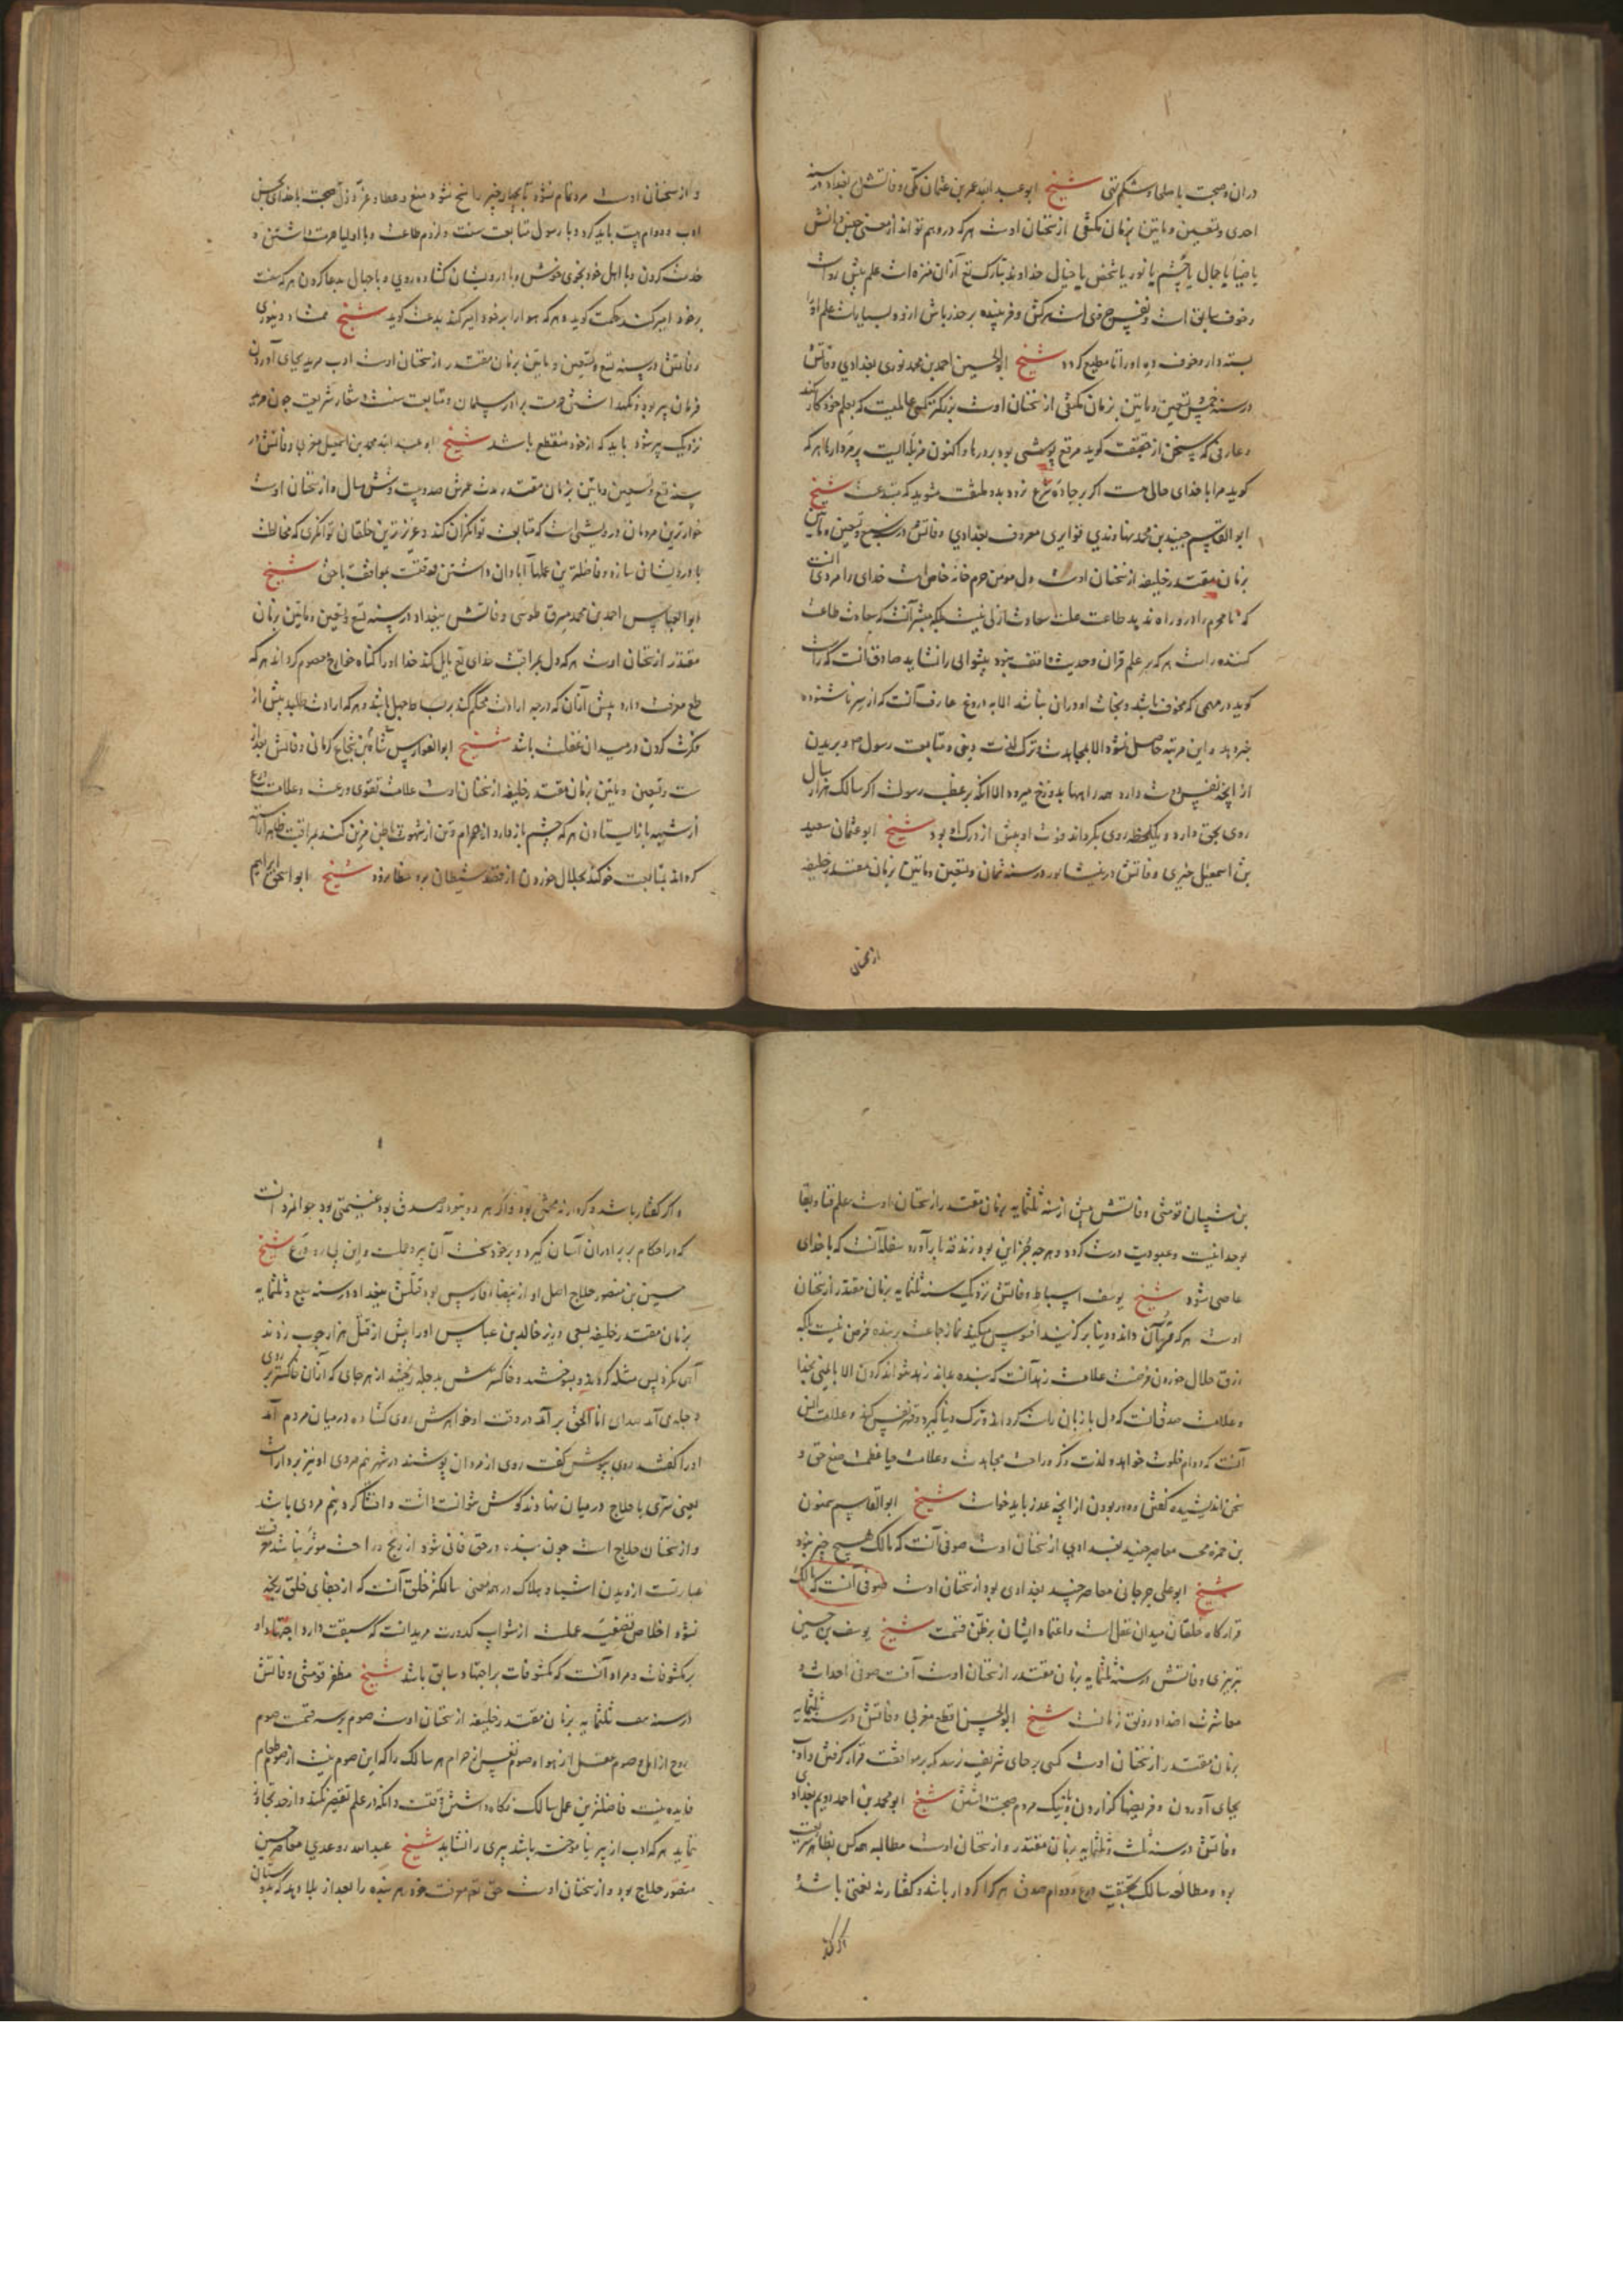 دران و صحبت با صلحا و شکم تهی شیخ ابو عبد الله عمر بن عثمان مکی وفاتش در بغداد در سنه
احدی و تسعین و مایتین بزمان مکتفی از سخنان اوست هر که در وهم تو اند از معنی
یا ضیا یا جمال یا چشم یا نور یا شخص یا خیال خداوند تبارک تع از ان منزه است علم پیش رواست
و خوف سایق است و نفس حرونی است سرکش و فریبنده بر حذر باش از وی بسیاست علم او را
بسته دار و خوف ده او را تا مطیع کردد شیخ ابو الحسین احمد بن محمد نوری بغدادی وفاتش
در سنه خمس و تسعین و مایتین بزمان مکتفی از سخنان اوست بزرکتر کسی عالمیست که بعلم خود کار کند
و عارفی که سخن از حقیقت کوید مرقع پوششی بود بر درها و اکنون مزبله‌ایست بر مردارها هر که
کوید مرا با خدای حالی هست اکر بر جاده شرع نرود بدو ملتفت مشوید که مبتدعست شیخ
ابو القاسم جنید بن محمد نهاوندی قواریری معروف ببغدادی وفاتش در سنه سبع و تسعین و مایتین
بزمان مقتدر خلیفه از سخنان اوست دل مومن حرم خانه خاص است خدای را مرد آنست
که نا محرم را در و راه ندهد طاعت علت سعادت ازلی نیست بلکه مبشر آنست که سعادت طاعت
کننده راست هر که بر علم قران و حدیث واقف نبود پیشوایی را نشاید صادق آنست که راست
کوید در مهمی که مخوف باشد و نجات او دران نباشد الا به دروغ عارف آنست که از سر ناشنوده
خبر دهد و این مرتبه حاصل نشود الا بمجاهدت و ترک لذت دنیی و متابعت رسول و بریدن
از آنچه نفس دوست دارد همه راهها بدوزخ میرود الا آنکه بر عقب رسولست اکر سالک هزار سال
روی بحق دارد و یکلحظه روی بکرداند فوت او بیش از درک او بود شیخ ابو عثمان سعید
بن اسمعیل حیری وفاتش در نیشابور در سنه ثمان و تسعین و مایتین بزمان مقتدر خلیفه
از سخنان
و از سخنان اوست مرد تمام نشود تا بچهار چیز راضی نشود منع و عطا و عز و ذل صحبت با خدای بحسن
ادب و دوام هیبت باید کرد و با رسول متابعت سنت و لزوم طاعت و با اولیا حرمت داشتن و
خدمت کردن و با اهل خود بخوی خوش و با درویشان کشاده روی و با جهال بدعا کردن هر که سنت
بر خود امیر کند حکمت کوید و هر که هوا را بر خود امیر کند بدعت کوید شیخ ممشاد دینوری
وفاتش در سنه تسع و تسعین و مایتین بزمان مقتدر از سخنان اوست ادب مرید بجای آوردن
فرمان پیر بود و نکهداشتن حرمت برادر مسلمان و متابعت سنت و شعار شریعت چون مرید
نزدیک پیر شود باید که از خود منقطع باشد شیخ ابو عبد الله محمد بن اسمعیل مغربی وفاتش در
سنه تسع و تسعین و مایتین بزمان مقتدر مدت عمرش صد و بیست و شش سال و از سخنان اوست
خوارترین مردمان درویشی است که متابعت توانکران کند و عزیزترین خلقان توانکری که مخالطت
با درویشان سازد و فاضلترین عملها آبادان داشتن وقتست بموافقت با حق شیخ
ابو العباس احمد بن محمد مسروق طوسی وفاتش ببغداد در سنه تسع و تسعین و مایتین بزمان
مقتدر از سخنان اوست هر که دل بمراقبت خدای تع مایل کند خدا او را کناه جوارح معصوم کرداند هر که
طمع معرفت دارد پیش از آنکه درجه ارادت محکم کند بر بساط جهل باشد و هر که ارادت طلبد پیش از
فکرت کردن در میدان غفلت باشد شیخ ابو الفوارس شاه بن شجاع کرمانی وفاتش بعد از
و تسعین و مایتین بزمان مقتدر خلیفه از سخنان اوست علامت تقوی ورعست و علامت ورع
از شبهه باز ایستادن هر که چشم باز دارد از حرام و تن از شهوت و باطن مزین کند بمراقبت ظاهر آراسته
کرداند بمتابعت و خو کند بحلال خوردن از قصد شیطان بدو خطا نرود شیخ ابو اسحق ابراهیم
بن شیبان قرمسی وفاتش پیش از سنه ثلثمایه بزمان مقتدر از سخنان اوست علم فنا و بقا
بوحدانیت و عبودیت درست کردد و هر چه جز این بود زندقه بار آورد سفله آنست که با خدای
عاصی شود شیخ یوسف اسباط وفاتش نزدیک سنه ثلثمایه بزمان مقتدر از سخنان
اوست هر که قرآن داند و دنیا بر کزیند افسوس میکند نماز جماعت بر بنده فرض نیست بلکه
رزق حلال خوردن فرضست علامت زهد آنست که بنده بداند زهد نتواند کردن الا با ایمنی بخدا
و علامت صدق آنست که دل با زبان راست کرداند و ترک دنیا کیرد و قهر نفس کند و علامت انس
آنست که دوام خلوت خواهد و لذت ذکر و راحت مجاهدت و علامت حیا عظمت صنع حق و
سخن اندیشیده کفتن و دور بودن از آنچه عذر باید خواست شیخ ابو القاسم سمنون
بن حمزه محب معاصر جنید بغدادی از سخنان اوست صوفی آنست که مالک هیچ چیز نبود
شیخ ابو علی جرجانی معاصر جنید بغدادی بود از سخنان اوست صوفی آنست که مالک
قرارکاه خلقان میدان غفلت است و اعتماد ایشان بر ظن و قسمت شیخ یوسف بن حسین
تبریزی وفاتش در سنه ثلثمایه بزمان مقتدر از سخنان اوست آفت صوفی احداث و
معاشرت اضداد و رفق زنانست شیخ ابو الحسن اقطع مغربی وفاتش در سنه ثلثمایه
بزمان مقتدر از سخنان اوست کسی بر جای شریف نرسد مکر بر موافقت قرار کرفتن و آداب
بجای آوردن و فریضها کزاردن و با نیک مردم صحبت داشتن شیخ ابو محمد بن احمد رویم بغدادی
وفاتش در سنه ثلث و ثلثمایه بزمان مقتدر و از سخنان اوست مطالبه همه کس بظاهر شریعت
بود و مطالعه سالک بحقیقت ورع و دوام صدق هر کرا کردار باشد و کفتار نه نعمتی باشد
و اگر کفتار باشد و کردار نه محنتی بود و اگر هر دو نبود و صدق بود غنیمتی بود جوانمرد آنست
که در احکام بر برادران آسان کیرد و بر خود سخت آن پیرو علمست و این پی‌رو ورع شیخ
حسین بن منصور حلاج اصل او از بیضاء فارس بود قتلش ببغداد در سنه سبع و ثلثمایه
بزمان مقتدر خلیفه بسعی وزیر خالد بن عباس او را پیش از قتل هزار چوب زدند
آهی نکرد پس مثله کردند و بسوختند و خاکسترش بدجله ریختند از هر جای که از ان خاکستر بر روی
دجله می‌آمد صدای انا الحق بر آمد در وقت او خواهرش روی کشاده در میان مردم آمد
او را کفتند روی بپوش کفت روی از مردان پوشند در شهر نیم مردی او نیز بر دار است
یعنی سری با حلاج در میان نهادند کوش نتوانست داشت و افشا کرد نیم مردی باشد
و از سخنان حلاج است چون بنده در حق فانی شود از رنج و راحت موثر نباشد معرفت
عبارتست از دیدن اشیا و هلاک در همه معنی سالکتر خلق آنست که از جفای خلق رنجه
نشود اخلاص تصفیت عملست از شوایب کدورت مرید آنست که سبقت دارد اجتهاد او
بر مکشوفات و مراد آنست که مکشوفات بر اجتهاد سابق باشد شیخ مظفر قرمسی وفاتش
در سنه ثلثمایه بزمان مقتدر خلیفه از سخنان اوست صوم بر سه قسمت صوم
روح از امل و صوم عقل از هوا و صوم نفس از حرام هر سالک را که این صوم نیست از صوم طعام
فایده نیست فاضلترین عمل سالک نکاه داشتن وقتست و آنکه در علم تقصیر نکند و از حد تجاوز
ننماید هر که ادب از پیر نیاموخت باشد پیری را نشاید شیخ عبدالله رودعدی معاصر حسین
منصور حلاج بود و از سخنان اوست حق تع معرفت خود هر بنده را بعد از بلا دهد که بدو رساند